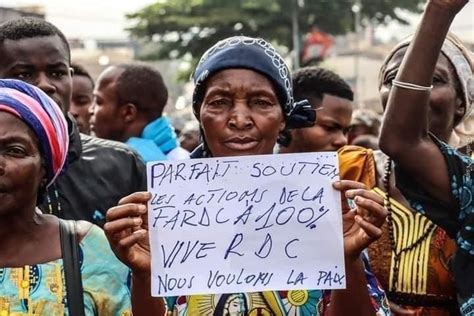 PARFAIT SOUTIEN
LES ACTIONS DE LA
FARDC À 100%
VIVE RDC
NOUS VOULONS LA PAIX